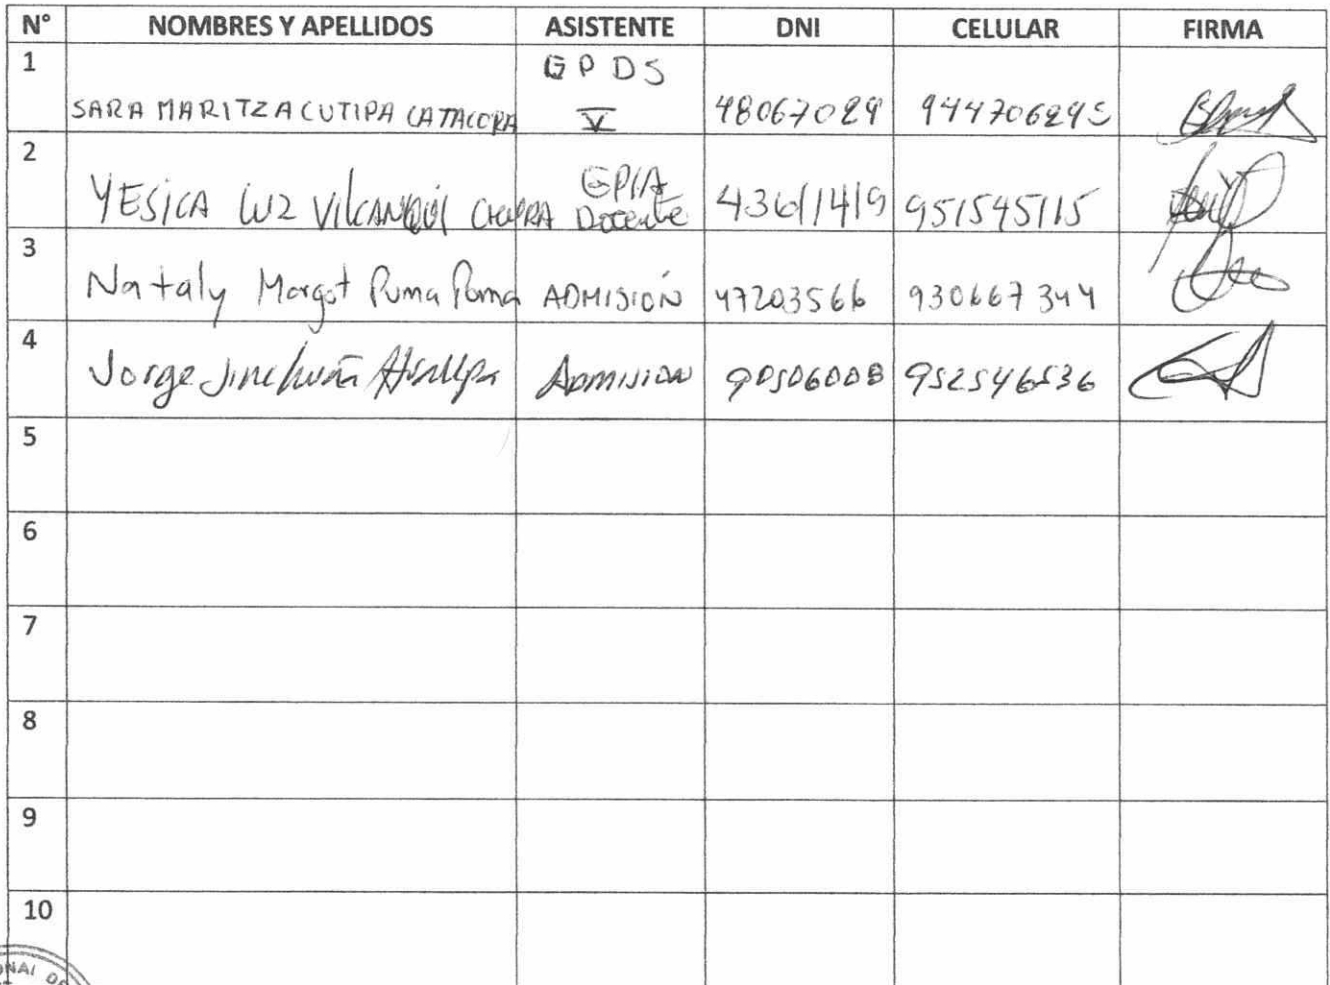 N° NOMBRES Y APELLIDOS ASISTENTE DNI CELULAR FIRMA
1 GPDS
SARA MARITZA CUTIPA CATACORA V 944706295
2 YESICA LUZ VILCANQUI EPIA
Docente 43611419 951545115
3 Nataly Margot Puma Poma ADMISIÓN 47203566 930667344
4 Jorge Jinchuña ADMISION 952546536
5
6
7
8
9
10